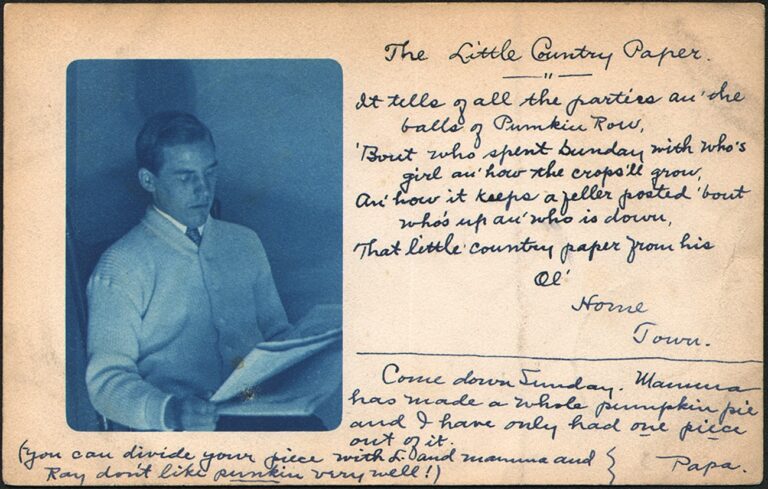 The Little Country Paper.
It tells of all the parties an' the
balls of Pumkin Row,
'Bout who spent Sunday with who's
girl an' how the crops'll grow,
An' how it keeps a feller posted 'bout
who's up an' who is down,
That little country paper from his
Ol'
Home
Town.
Come down Sunday. Mamma
has made a whole pumpkin pie
and I have only had one piece
out of it.
(You can divide your piece with L. and mamma and
Ray don't like punkin very well!)
Papa.